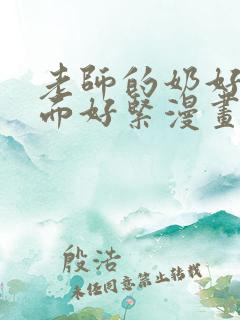 老師的奶好
而好緊漫畫
殷浩
未经同意禁止转载